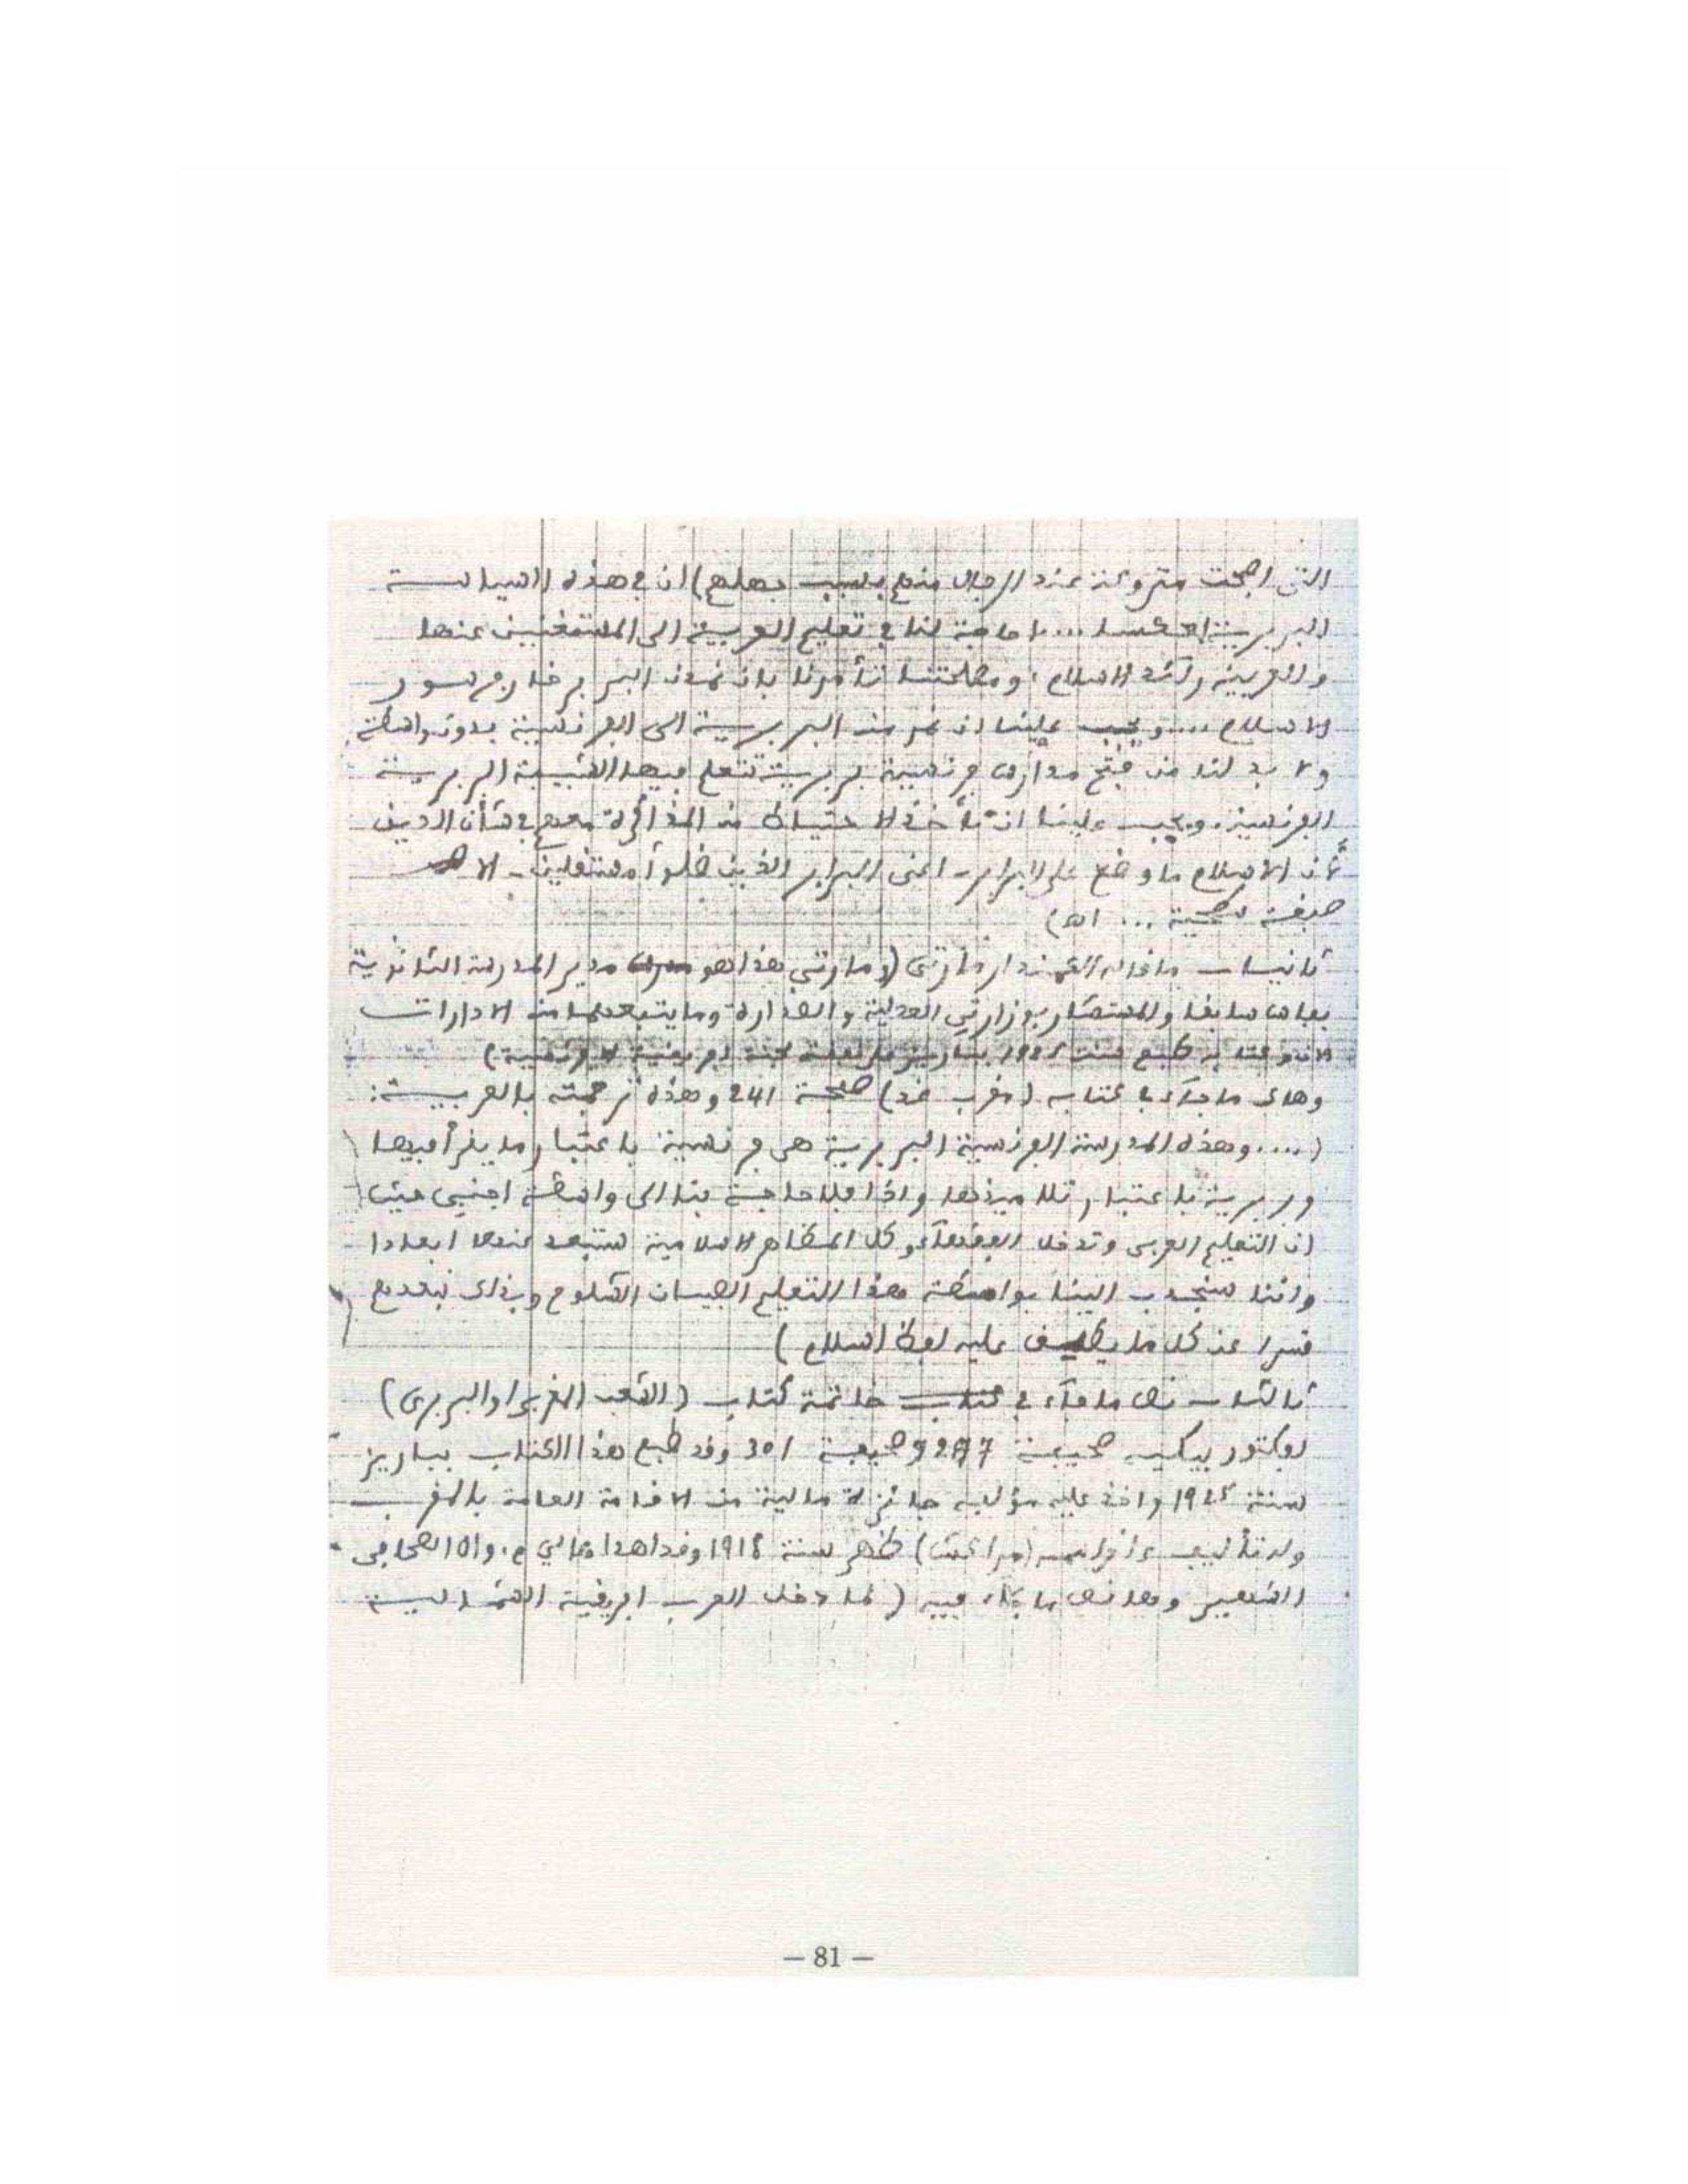 التى اصبحت متروكة عند الرجال منهم بسبب جهلهم) ان في هذه السياسة
البربرية ... لا حاجة لنا في تعليم العربية الى المستغنيين عنها
والعربية رائد الاسلام، ومصلحتنا تأمرنا بان نمدن البربر خارج سور
الاسلام .... ويجب علينا ان نمر من البربرية الى الفرنسية بدون واسطة
ولا بد لنا من فتح مدارس فرنسية بربرية تتعلم فيها الشبيبة البربرية
الفرنسية. ويجب علينا ان نأخذ الاحتياط من المذاكرة معهم في شأن الدين
لأن الاسلام ما وضع على البرابر - اعنى البرابر الذين ظلوا مستقلين - الا
صبغة سطحية ... اه)
ثانيا - ما قاله القمندار مارتى (ومارتي هذا هو مدير المدرسة الثانوية
بفاس سابقا والمستشار بوزارتي العدلية والصدارة وما يتبعهما من الادارات
الآن وكتابه طبع سنة 1925 بباريز على نفقة لجنة افريقية الافرنسية)
وهاك ما جاء في كتابه (مغرب غد) صفحة 241 وهذه ترجمته بالعربية:
(.... وهذه المدرسة الفرنسية البربرية هي فرنسية باعتبار ما يقرأ فيها
وبربرية باعتبار تلاميذها واذا فلا حاجة بنا الى واسطة اجنبي حيث
ان التعليم العربى وتدخل الفقهاء وكل المظاهر الاسلامية ستبعد عنها ابعادا
واننا سنجذب الينا بواسطة هذا التعليم الصبيان الشلوح وبذلك نبعدهم
قسرا عن كل ما يطلق عليه لفظ اسلام)
ثالثا - نص ما جاء في خاتمة كتاب (الشعب المغربى او البربرى)
لفكتور بيكيه صحيفة 297 وصحيفة 301 وقد طبع هذا الكتاب بباريز
سنة 1925 واخذ عليه مؤلفه جائزة مالية من الاقامة العامة بالمغرب
وله تأليف ءاخر اسمه (مراكش) ظهر سنة 1918 وقد اهداه الي م. الصحافى
الشهير وها نص ما جاء فيه (لما دخل العرب افريقية الشمالية
— 81 —